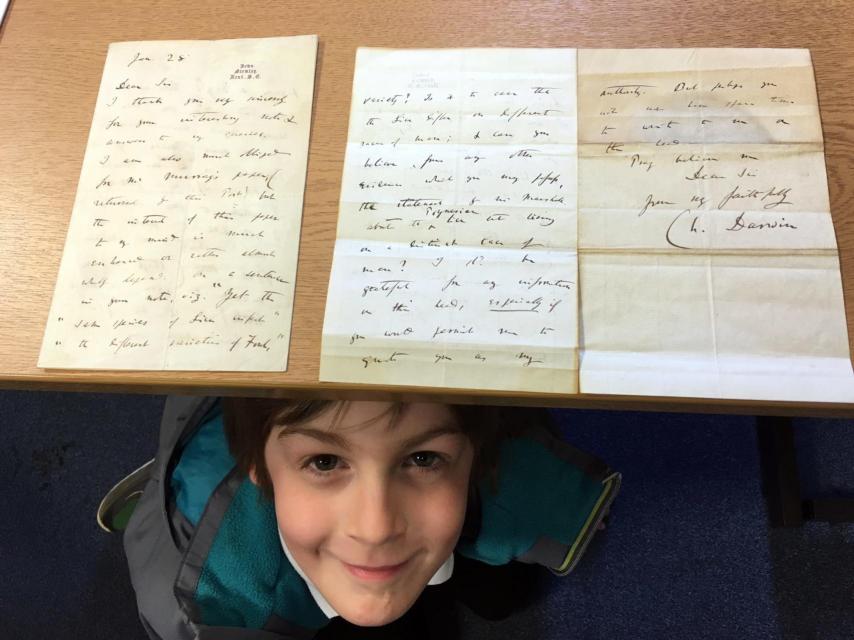 Jan 28
Down.
Bromley.
Kent. S.E.
Dear Sir
I thank you very sincerely
for your interesting note &
answer to my queries.
I am also much obliged
for Mr Murray's paper
returned by this Post) but
the interest of this paper
to my mind is much
enhanced or rather almost
wholly depends on a sentence
in your note, viz. "Yet the
"same species of Lice infest"
"the different varieties of Fowl,"
variety? Is it to case the
the Lice differ on different
races of man; & can you
believe from any other
evidence which you may possess,
the statement of Mr Marshall
Polynesian
about the Lice not living
on a distinct race of
man? I shd. be
grateful for any information
on this head, especially if
you would permit me to
quote you as my
authority. But perhaps you
will not have spare time
to write to me on
this head.
Pray believe me
Dear Sir
yours very faithfully
Ch. Darwin